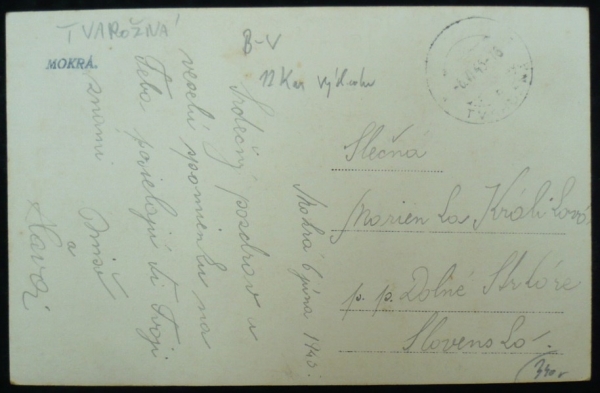 TVAROŽNÁ
MOKRÁ.
B-V
Srdečný pozdrav a
veselú spomienku na
Teba posielajú ti Tvoji
známi
a
Slavoj
Mokrá 6 júna 1943.
Slečna
Marienka Králiková
p. p. Dolné Srkóre
Slovensko.